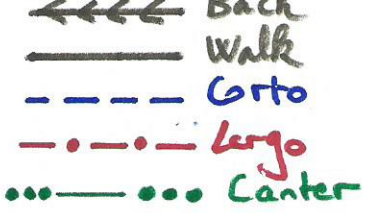 Back
Walk
Corto
Largo
Canter